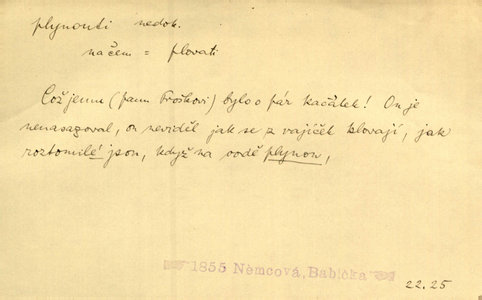 plynouti nedok.
na čem = plovati
Což jemu (panu Froškovi) bylo o pár kačátek! On je
nenasazoval, on neviděl jak se z vajíček klovají, jak
roztomilé jsou, když na vodě plynou,
1855 Němcová, Babička
22.25